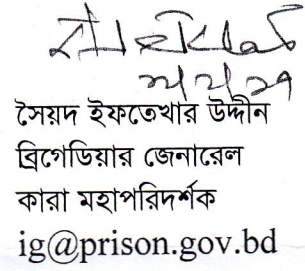 সৈয়দ ইফতেখার উদ্দীন
ব্রিগেডিয়ার জেনারেল
কারা মহাপরিদর্শক
ig@prison.gov.bd